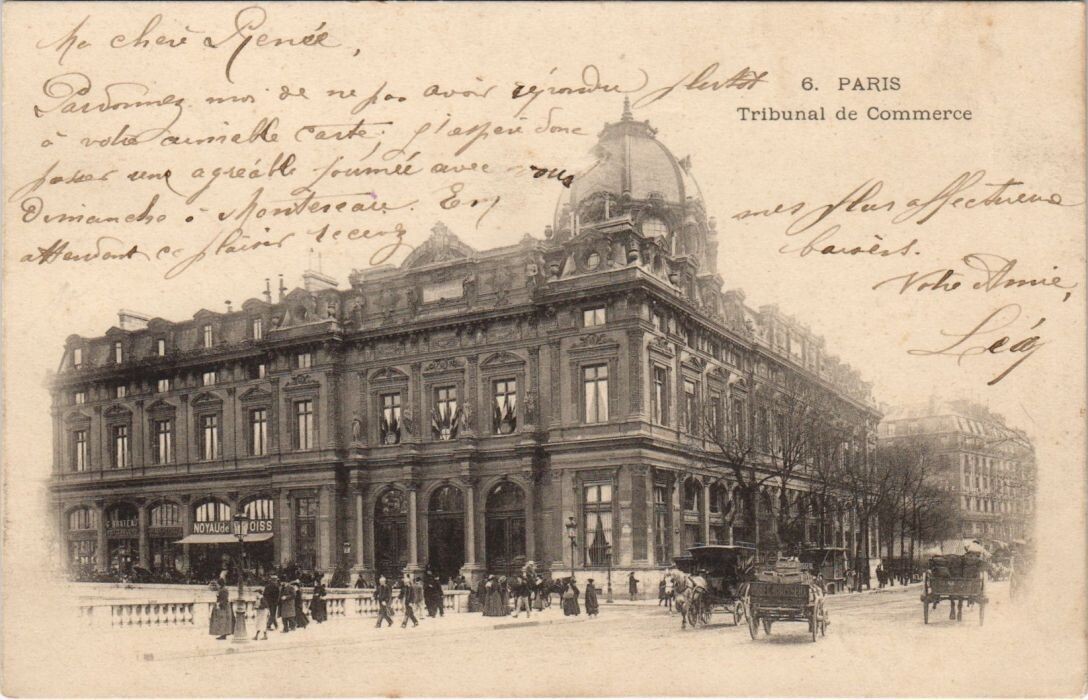 Ma chère Renée,
Pardonnez moi de ne pas avoir répondu plutôt
à votre aimable carte. J'espère donc
passer une agréable journée avec vous
Dimanche à Montereau. En
attendant ce plaisir recevez
mes plus affectueux
baisers.
Votre Amie,
Léa
6. PARIS
Tribunal de Commerce
NOYAU de POISS